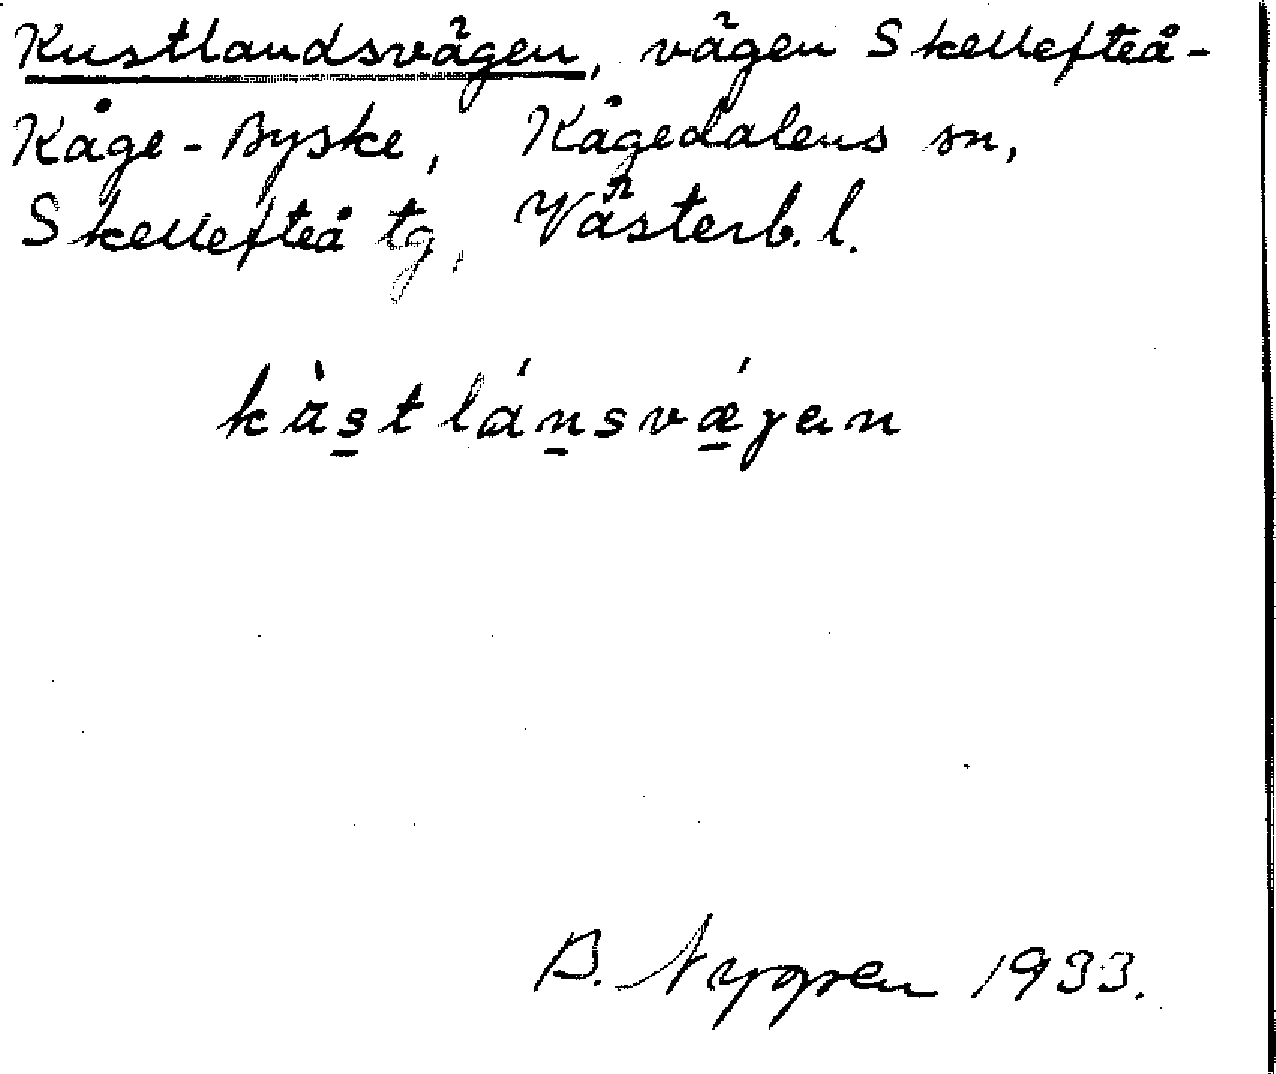 Kustlandsvägen, vägen Skellefteå-
Kåge-Byske, Kågedalens sn,
Skellefteå tg, Västerb. l.
B. Nygren 1933.